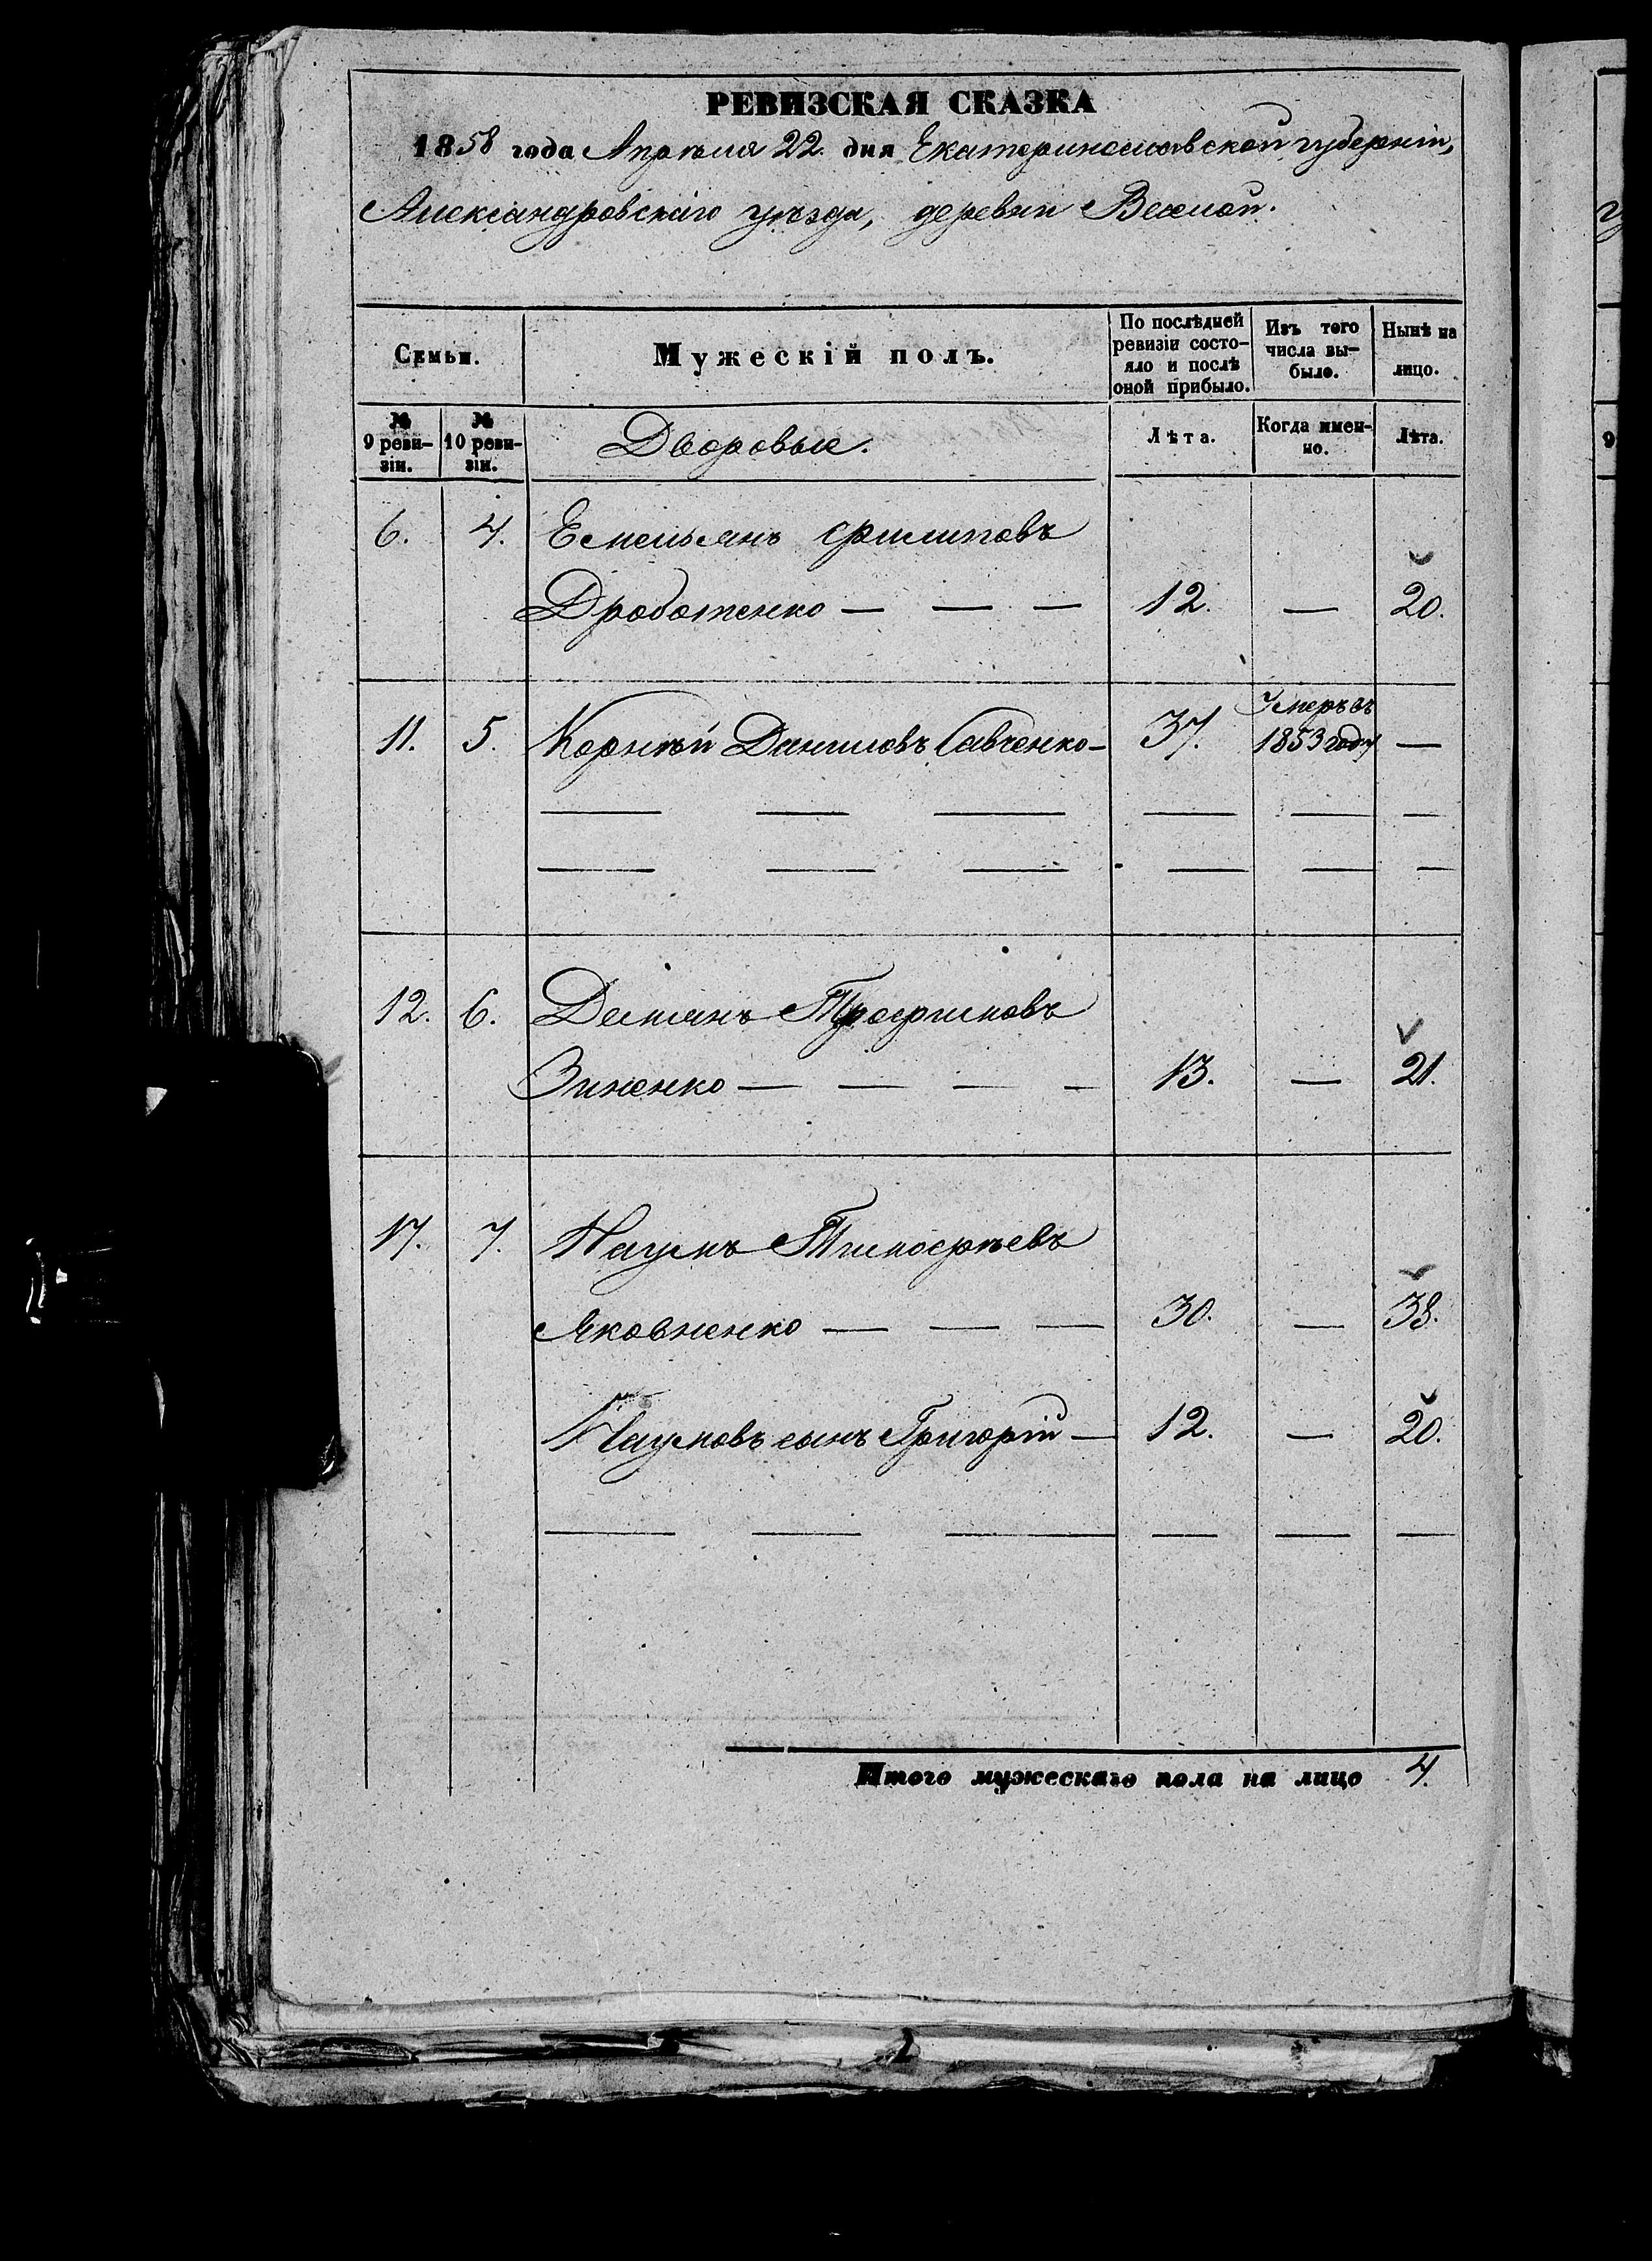 РЕВИЗСКАЯ СКАЗКА
1858 года Апрѣля 22 дня Екатеринославской губерніи,
Александровскаго уѣзда, деревни Веселой.
Семьи.
Мужескій полъ.
По послѣдней ревизіи состо-
яло и послѣ
оной прибыло.
Изъ того
числа вы-
было.
Нынѣ на
лицо.
№
9 реви-
зіи.
№
10 реви-
зіи.
Дворовые.
Лѣта.
Когда имен-
но.
Лѣта.
6. 4. Емельянъ Филиповъ
Дроботенко — — — 12. — 20.
11. 5. Корнѣй Даниловъ Савченко — 37. Умеръ въ
1853 году —
12. 6. Демянъ Трофимовъ
Зиненко — — — — 13. — 21.
17. 7. Наумъ Тимофѣевъ
Яковненко — — — 30. — 38.
Наумовъ сынъ Григорій — 12. — 20.
Итого мужескаго пола на лицо 4.
9